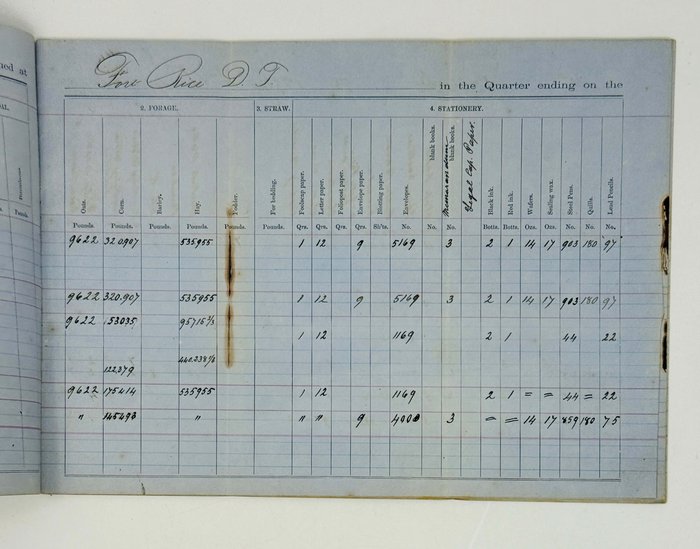 ned at
Fort Rice D. T. in the Quarter ending on the
2. FORAGE. 3. STRAW. 4. STATIONERY.
Oats. Corn. Barley. Hay. Fodder. For bedding. Foolscap paper. Letter paper. Foliopost paper. Envelope paper. Blotting paper. Envelopes. blank books. Memorandum blank books. Legal Cap Paper. Black ink. Red ink. Wafers. Sealing wax. Steel Pens. Quills. Lead Pencils.
Pounds. Pounds. Pounds. Pounds. Pounds. Pounds. Qrs. Qrs. Qrs. Qrs. Sh'ts. No. No. No. Botts. Botts. Ozs. Ozs. No. No. No.
9622 320.907 535955 1 12 9 5169 3 2 1 14 17 903 180 97
9622 320.907 535955 1 12 9 5169 3 2 1 14 17 903 180 97
9622 53035 95716 2/3
1 12 1169 2 1 44 22
122379 440.238 1/3
9622 175414 535955 1 12 1169 2 1 = = 44 = 22
" 145493 " " " 9 4000 3 = = 14 17 859 180 75